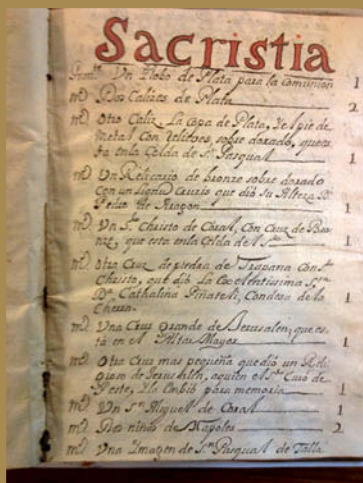 Sacristia
Primte Un Globo de Plata para la comunion 1
mD Dos Calizes de Plata 2
mD Otro Caliz, La copa de Plata, y el pie de
metal con relieves, sobre dorado, que es
ta en la Celda de Sn. Pasqual 1
mD Un Relicario de bronze sobre dorado
con un Lignu Crucis que dió su Alteza Dn.
Pedro de Aragon 1
mD Un Sto. Christo de Coral, con Cruz de Bron
ze, que esta en la Celda de N. Sto. 1
mD Otra Cruz de piedra de Trapana con Sto.
Christo, que dió La Excelentissima Sra.
Da. Cathalina Piñateli, Condesa de la
Cherra 1
mD Una Cruz Grande de Jerusalen, que es
tá en el Altar Mayor 1
mD Otra Cruz mas pequeña que dió un Reli
gioso de Jerusalen, a quien el Sto. Curó de
Peste, y la embió para memoria 1
mD Un Sn. Miguel de Coral 1
mD Dos niños de Napoles 2
mD Una Imagen de Sn. Pasqual de Talla